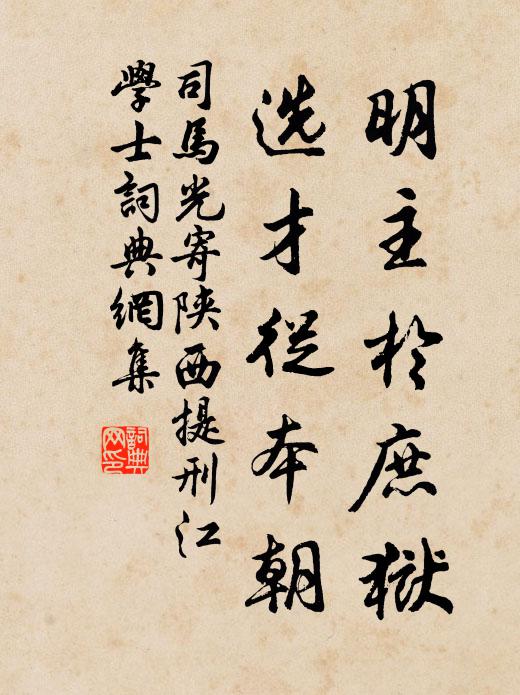 明主於庶獄
选才従本朝
司馬光寄陝西提刑江
學士詞典網集
詞典
网印